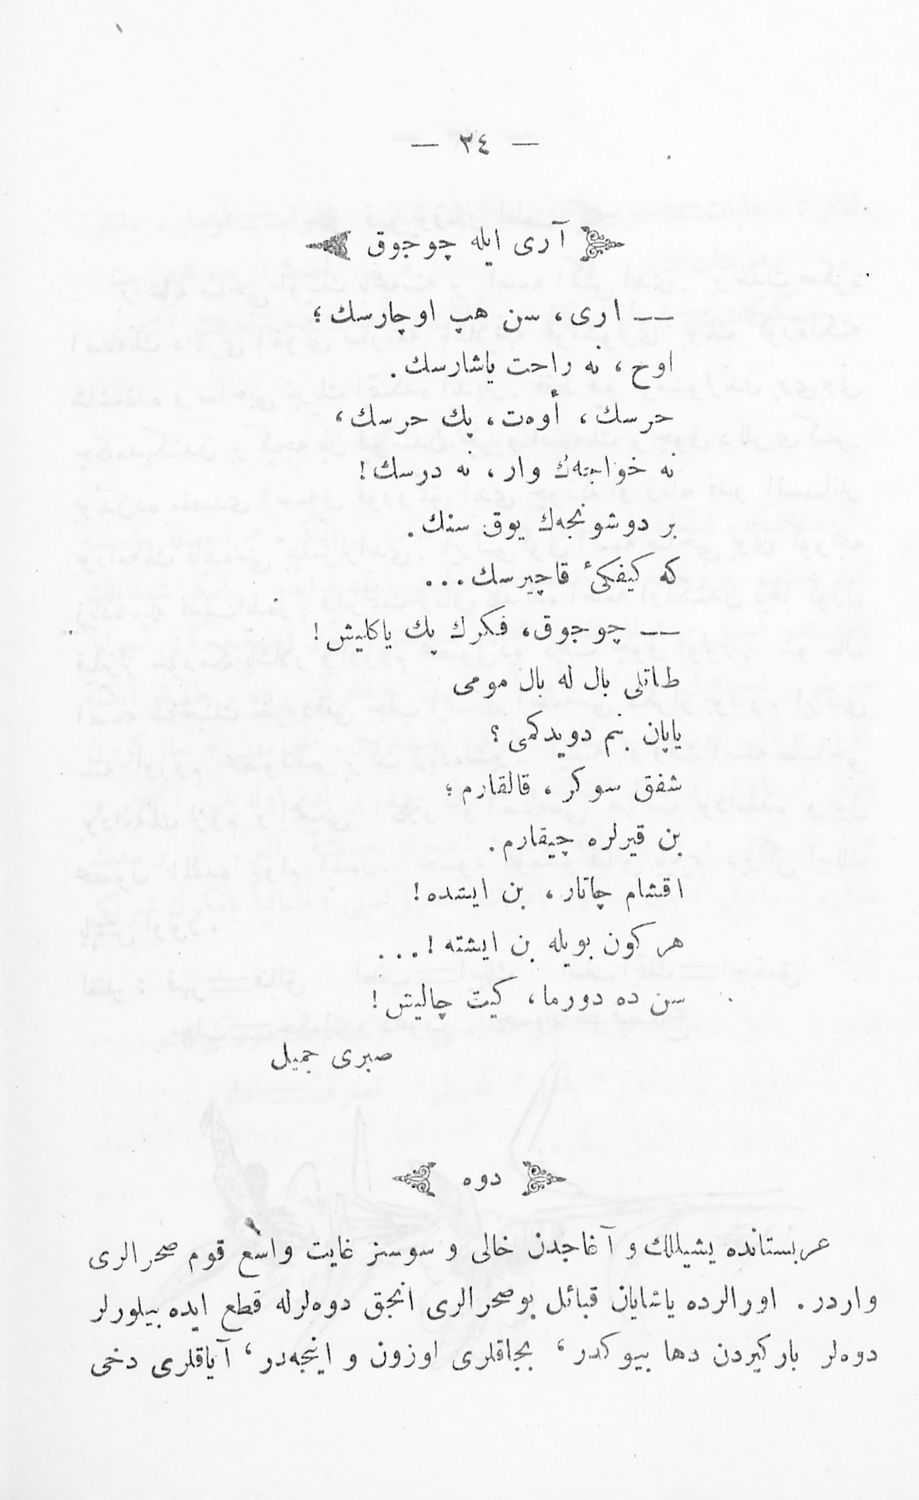 — ٢٤ —
آری ایله چوجوق
— اری، سن هپ اوچارسك؛
اوح، نه راحت یاشارسك.
حرسك، أوه‌ت، پك حرسك،
نه خواجه‌ك وار، نه درسك!
بر دوشونجه‌ك یوق سنك.
كه كیفكیٔ قاچیرسك...
— چوجوق، فكرك پك یاكلیش!
طاتلی بال له بال مومی
یاپان بنم دویدكمی؟
شفق سوكر، قالقارم؛
بن قیرلره چیقارم.
اقشام چاتار، بن ایشده!
هركون بویله بن ایشته!...
سن ده دورما، كیت چالیش!
صبری جمیل
دوه
عربستانده یشیللك و آغاجدن خالی و سوسز غایت واسع قوم صحرالری
واردر. اورالرده یاشایان قبائل بوصحرالری انجق دوه‌لرله قطع ایده بیلورلر
دوه‌لر باركیردن دها بیوكدر، بجاقلری اوزون و اینجه‌در، آیاقلری دخی